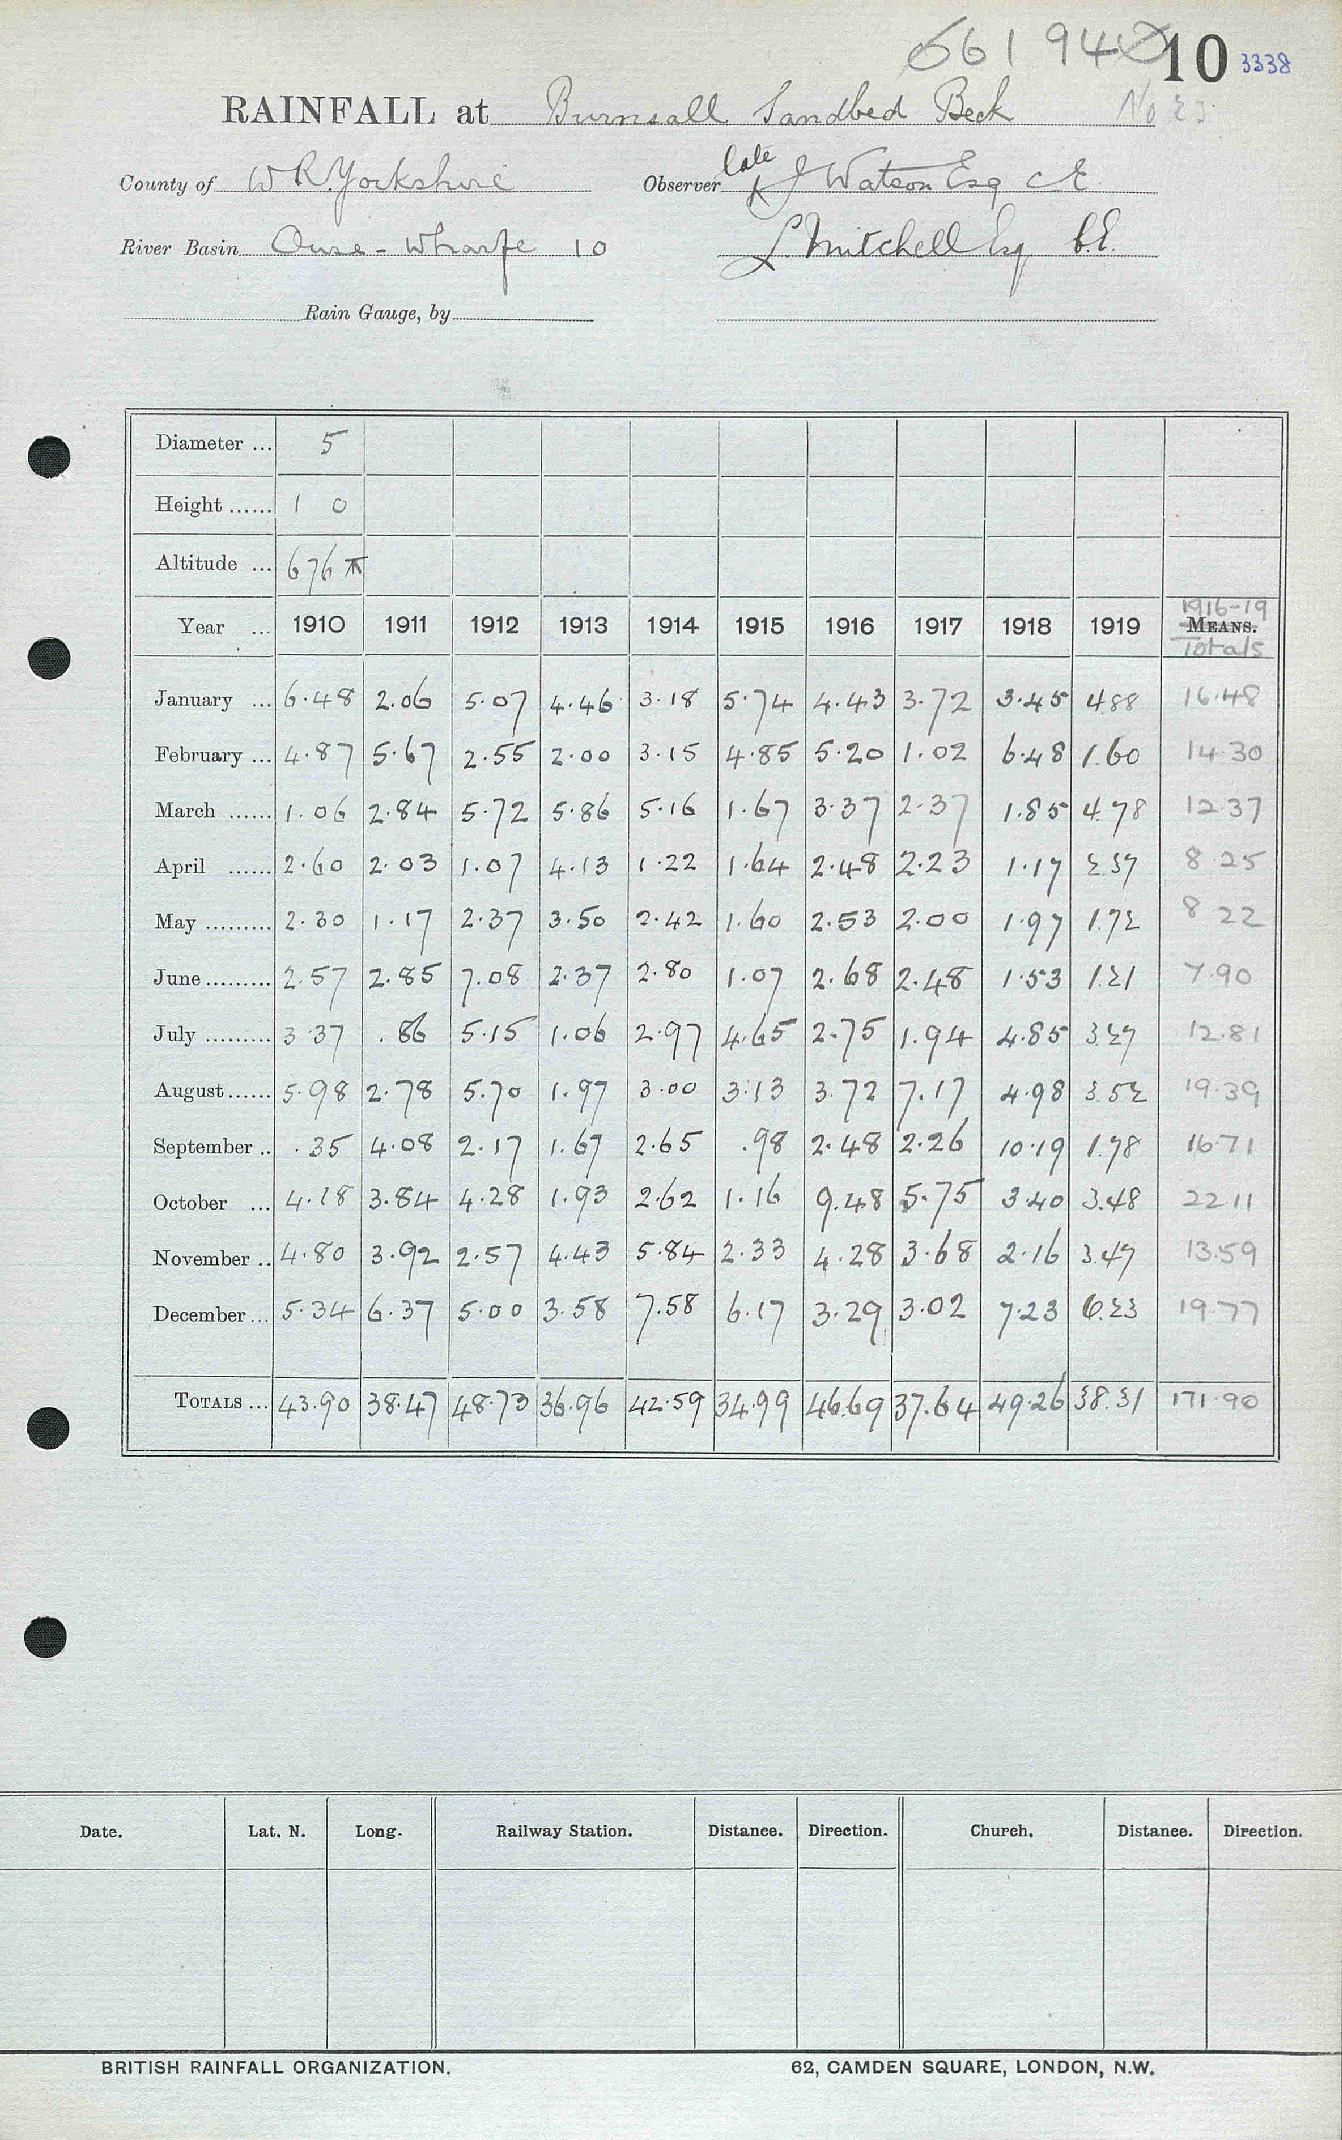 661940 10 3338
RAINFALL at Burnsall Sandbed Beck No 23
County of W R Yorkshire Observer late J Watson Esq CE
River Basin Ouse - Wharfe 10 L. Mitchell Esq C.E.
Rain Gauge, by
Diameter ... 5
Height ...... 1 0
Altitude ... 676
Year ... 1910 1911 1912 1913 1914 1915 1916 1917 1918 1919 1916-19 MEANS. Totals
January ... 6.48 2.06 5.07 4.46 3.18 5.74 4.43 3.72 3.45 4.88 16.48
February ... 4.87 5.67 2.55 2.00 3.15 4.85 5.20 1.02 6.48 1.60 14.30
March ...... 1.06 2.84 5.72 5.86 5.16 1.67 3.37 2.37 1.85 4.78 12.37
April ...... 2.60 2.03 1.07 4.13 1.22 1.64 2.48 2.23 1.17 2.37 8.25
May ......... 2.30 1.17 2.37 3.50 2.42 1.60 2.53 2.00 1.97 1.72 8.22
June ......... 2.57 2.85 7.08 2.37 2.80 1.07 2.68 2.48 1.53 1.21 7.90
July ......... 3.37 .86 5.15 1.06 2.97 4.65 2.75 1.94 4.85 3.27 12.81
August ...... 5.98 2.78 5.70 1.97 3.00 3.13 3.72 7.17 4.98 3.52 19.39
September .. .35 4.08 2.17 1.67 2.65 .98 2.48 2.26 10.19 1.78 16.71
October ... 4.18 3.84 4.28 1.93 2.62 1.16 9.48 5.75 3.40 3.48 22.11
November .. 4.80 3.92 2.57 4.43 5.84 2.33 4.28 3.68 2.16 3.47 13.59
December ... 5.34 6.37 5.00 3.58 7.58 6.17 3.29 3.02 7.23 6.23 19.77
TOTALS ... 43.90 38.47 48.73 36.96 42.59 34.99 46.69 37.64 49.26 38.31 171.90
Date. Lat. N. Long. Railway Station. Distance. Direction. Church. Distance. Direction.
BRITISH RAINFALL ORGANIZATION. 62, CAMDEN SQUARE, LONDON, N.W.